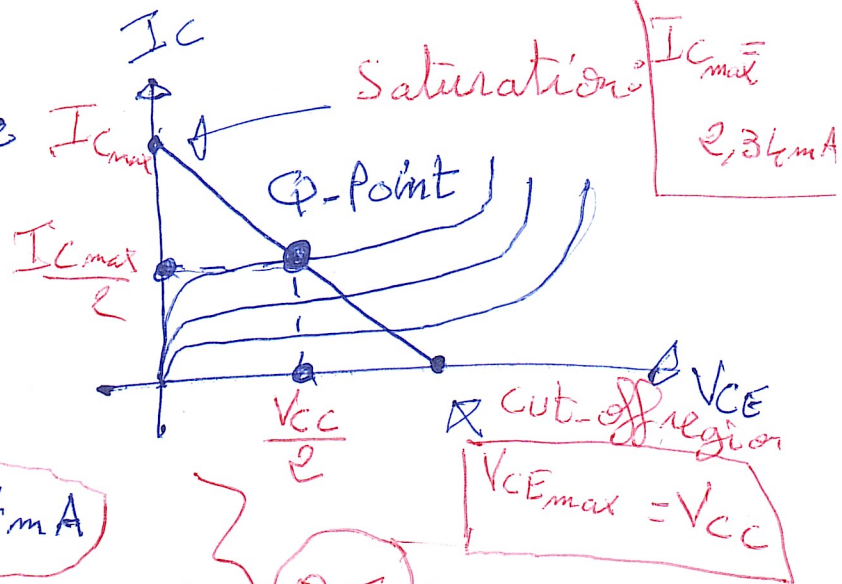 IC
Saturation:
IC max =
2,34mA
IC max
Q-Point
IC max
2
VCE
VCC
2
cut-off region
VCE max = VCC
mA